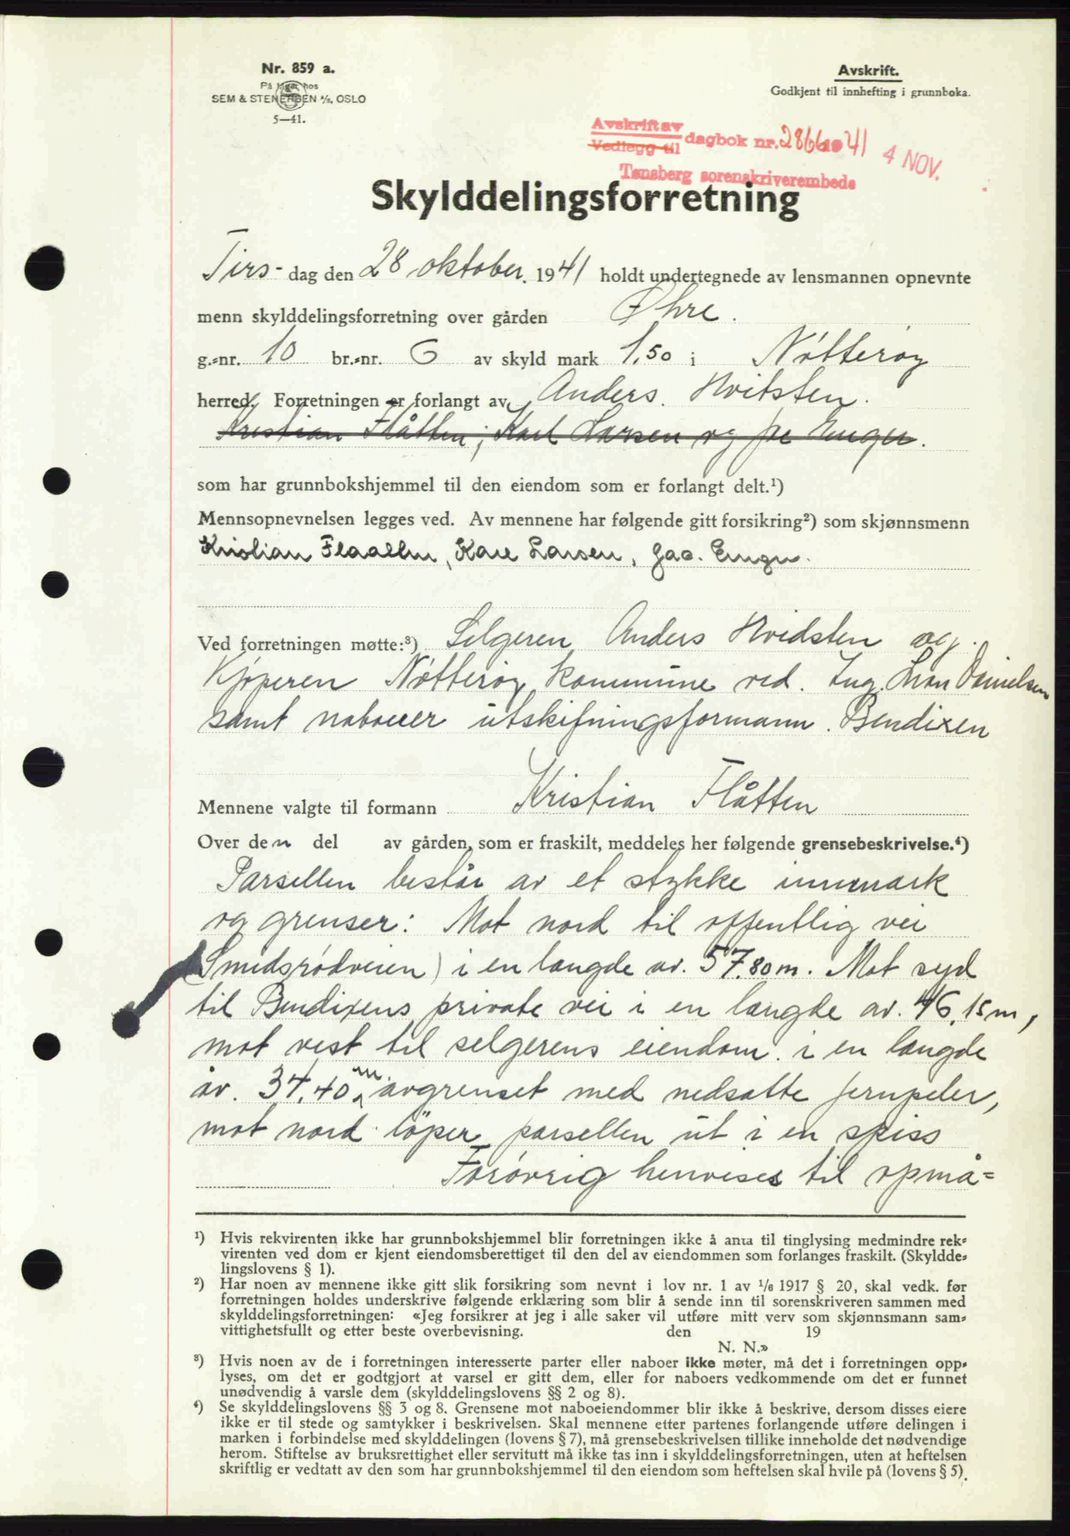 Nr. 859 a.
På lager hos
SEM & STENERSEN A/S, OSLO
5—41.
Avskrift.
Godkjent til innhefting i grunnboka.
Avskrift av
Vedlegg til dagbok nr. 2866 1941
4 NOV.
Tønsberg sorenskriverembede
Skylddelingsforretning
Tirs- dag den 28 oktober. 1941 holdt undertegnede av lensmannen opnevnte
menn skylddelingsforretning over gården Øhre.
g.-nr. 10 br.-nr. 6 av skyld mark 1,50 i Nøtterøy
herred. Forretningen er forlangt av Anders Hvitsten.
Kristian Flåtten; Karl Larsen og Jac Unger.
som har grunnbokshjemmel til den eiendom som er forlangt delt.¹)
Mennsopnevnelsen legges ved. Av mennene har følgende gitt forsikring²) som skjønnsmenn
Kristian Flaatten, Kare Larsen, Jac. Unger.
Ved forretningen møtte:³) Selgeren Anders Hvidsten og
Kjøperen Nøtterøy kommune ved. Ing. Danielsen
samt naboer utskifningsformann. Bendixen
Mennene valgte til formann Kristian Flåtten
Over den del av gården, som er fraskilt, meddeles her følgende grensebeskrivelse.⁴)
Parsellen består av et stykke innmark
og grenser: Mot nord til offentlig vei
(Smidsrødveien) i en længde av. 57,80 m. Mot syd
til Bendixens private vei i en længde av. 46,15 m,
mot vest til selgerens eiendom. i en længde
av. 34,40 m avgrenset med nedsatte jernpeler,
mot nord løper parsellen ut i en spiss
Forøvrig henvises til opmå=
¹) Hvis rekvirenten ikke har grunnbokshjemmel blir forretningen ikke å anta til tinglysing medmindre rek-
virenten ved dom er kjent eiendomsberettiget til den del av eiendommen som forlanges fraskilt. (Skyldde-
lingslovens § 1).
²) Har noen av mennene ikke gitt slik forsikring som nevnt i lov nr. 1 av ¹/₈ 1917 § 20, skal vedk. før
forretningen holdes underskrive følgende erklæring som blir å sende inn til sorenskriveren sammen med
skylddelingsforretningen: «Jeg forsikrer at jeg i alle saker vil utføre mitt verv som skjønnsmann sam-
vittighetsfullt og etter beste overbevisning. den 19
N. N.»
³) Hvis noen av de i forretningen interesserte parter eller naboer ikke møter, må det i forretningen opp-
lyses, om det er godtgjort at varsel er gitt dem, eller for naboers vedkommende om det er funnet
unødvendig å varsle dem (skylddelingslovens §§ 2 og 8).
⁴) Se skylddelingslovens §§ 3 og 8. Grensene mot naboeiendommer blir ikke å beskrive, dersom disses eiere
ikke er til stede og samtykker i beskrivelsen. Skal mennene etter partenes forlangende utføre delingen i
marken i forbindelse med skylddelingen (lovens § 7), må grensebeskrivelsen tillike inneholde det nødvendige
herom. Stiftelse av bruksrettighet eller servitutt må ikke tas inn i skylddelingsforretningen, uten at heftelsen
skriftlig er vedtatt av den som har grunnbokshjemmel til den eiendom som heftelsen skal hvile på (lovens § 5).